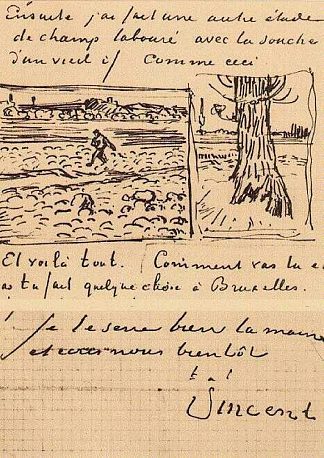 Ensuite j'ai fait une autre étude
de champ labouré avec la souche
d'un vieil if comme ceci
Et voilà tout. Comment vas tu
as tu fait quelque chose à Bruxelles.
Je te serre bien la main
et nous bientôt
t. à t.
Vincent